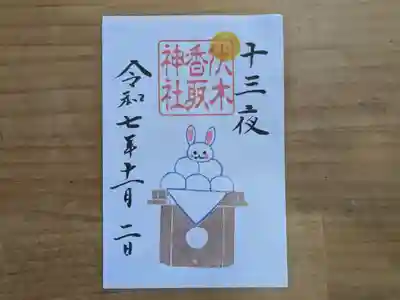 十三夜
伏木
香取
神社
令和七年十一月二日